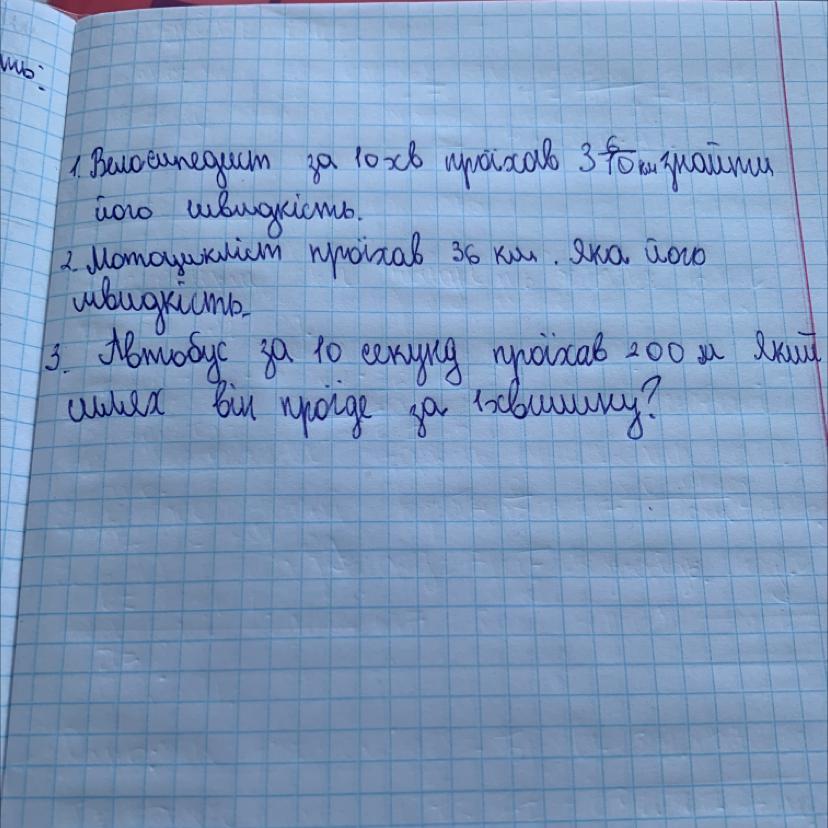 ть:
1. Велосипедист за 10хв проїхав 3 6/10 км знайти
його швидкість.
2. Мотоцикліст проїхав 36 км. Яка його
швидкість.
3. Автобус за 10 секунд проїхав 200 м Який
шлях він проїде за 1хвилину?